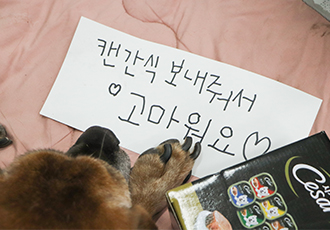 캔간식 보내줘서
♡ 고마워요♡
Cesar